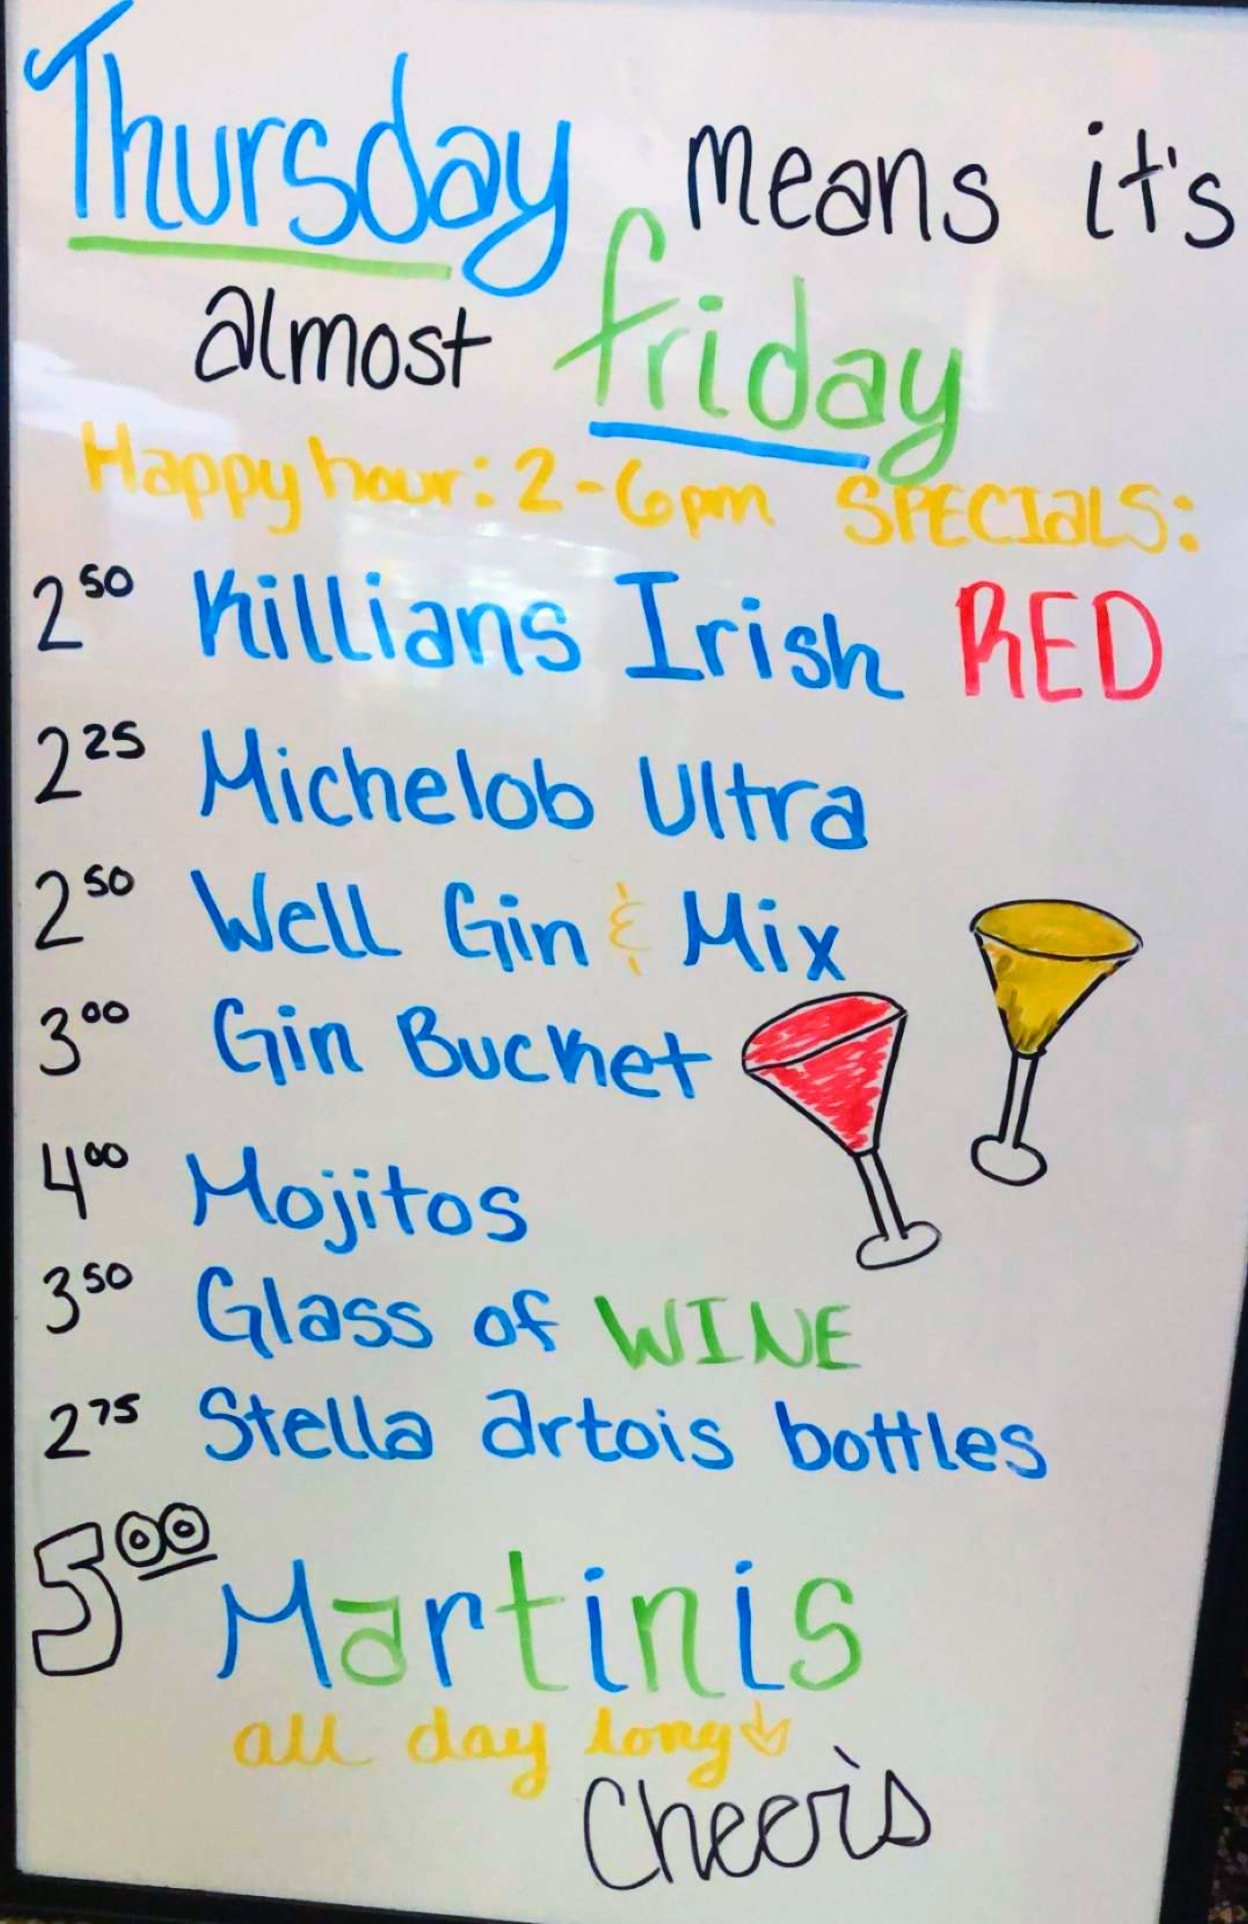 Thursday means it's
almost friday
Happy hour: 2-6pm SPECIALS:
2 50 Killians Irish RED
2 25 Michelob Ultra
2 50 Well Gin & Mix
3 00 Gin Bucket
4 00 Mojitos
3 50 Glass of WINE
2 75 Stella artois bottles
5 00 Martinis
all day long
Cheers